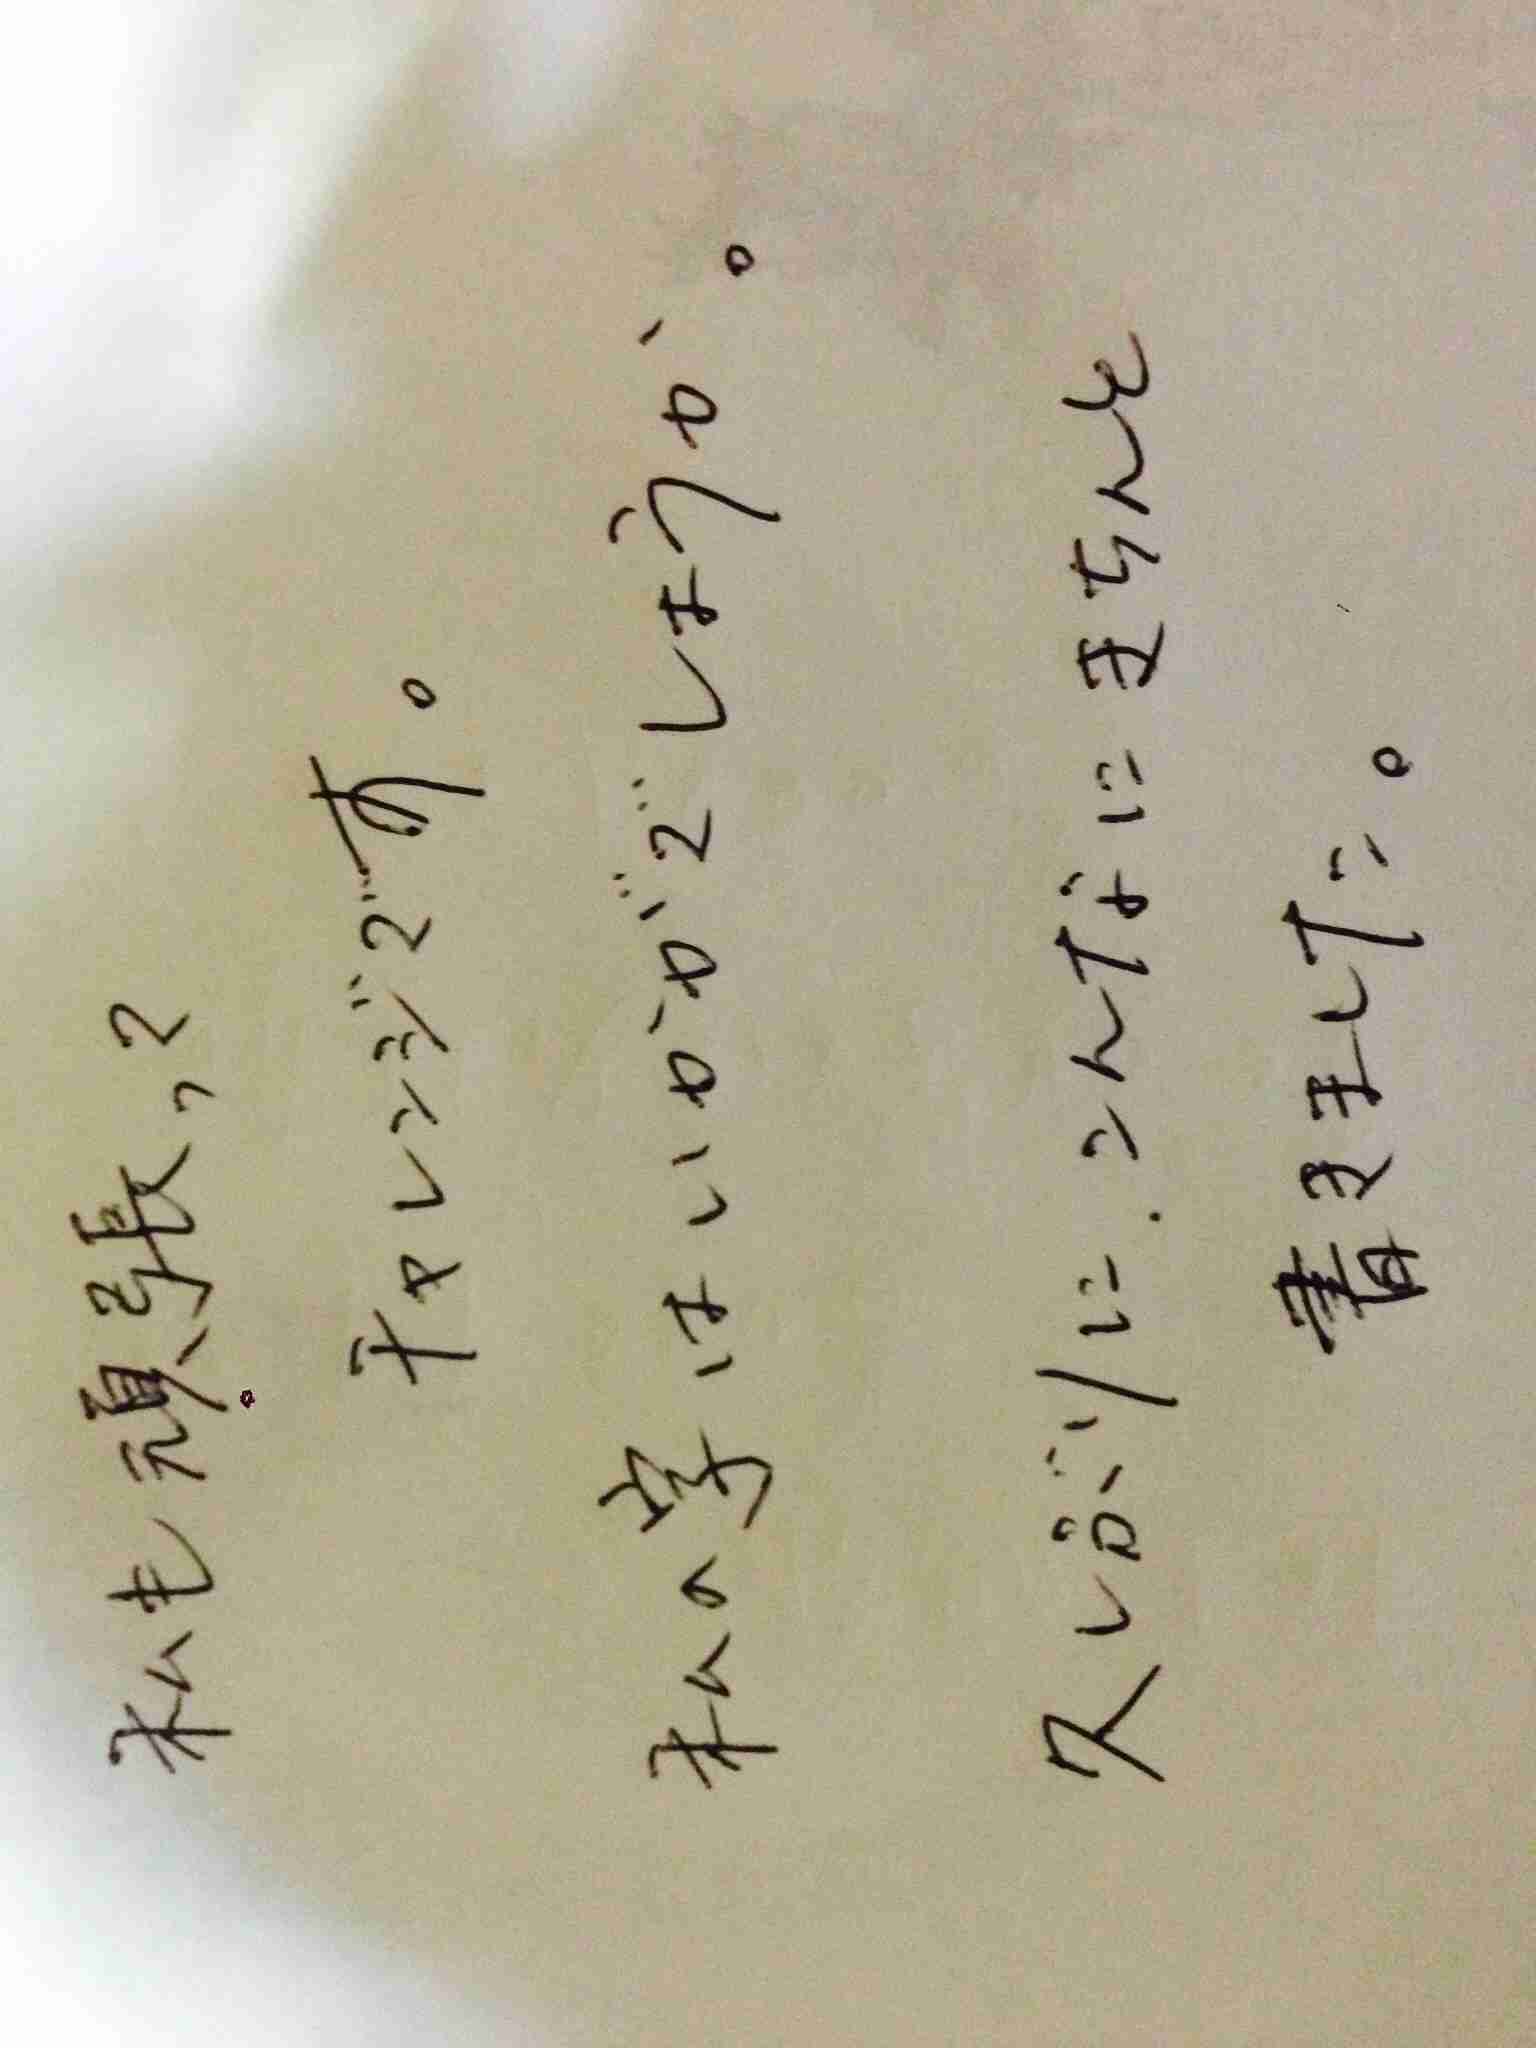 私も頑張って
チャレンジです。
私の字はいかがでしょうか。
久しぶりに.こんなにきちんと
書きました。